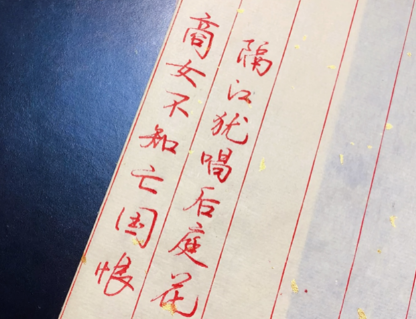 隔江犹唱后庭花
商女不知亡国恨